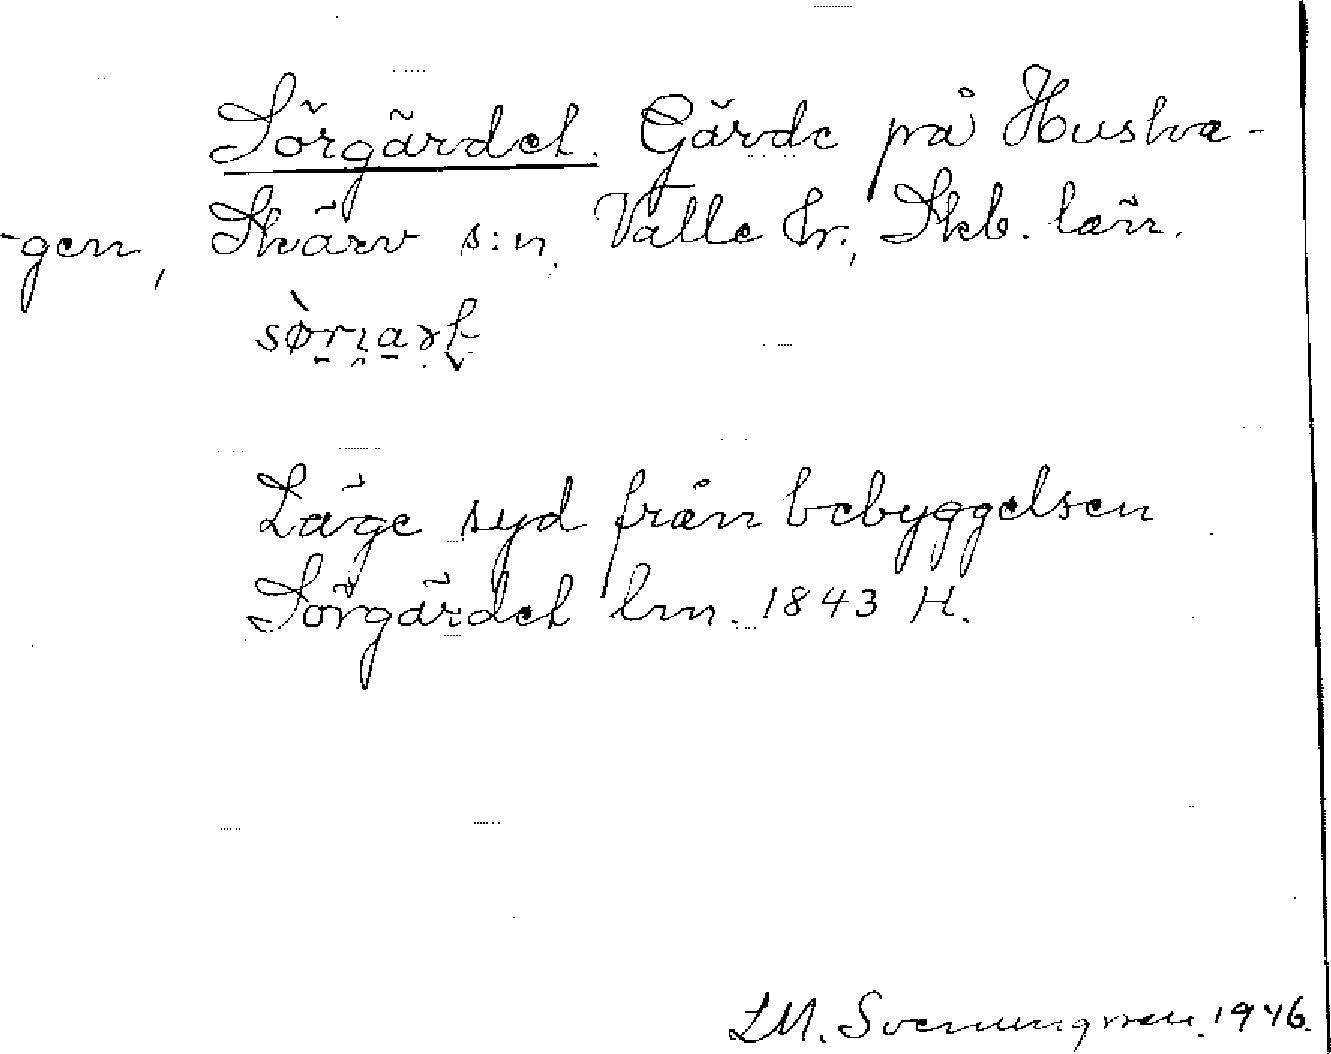 Sörgärdet. Gärde på Huslva-
-gen, Skärv s:n, Valle hr., Skb. län.
Läge syd från bebyggelsen
Sörgärdet lm. 1843 H.
LM. Svenungsson. 1946.